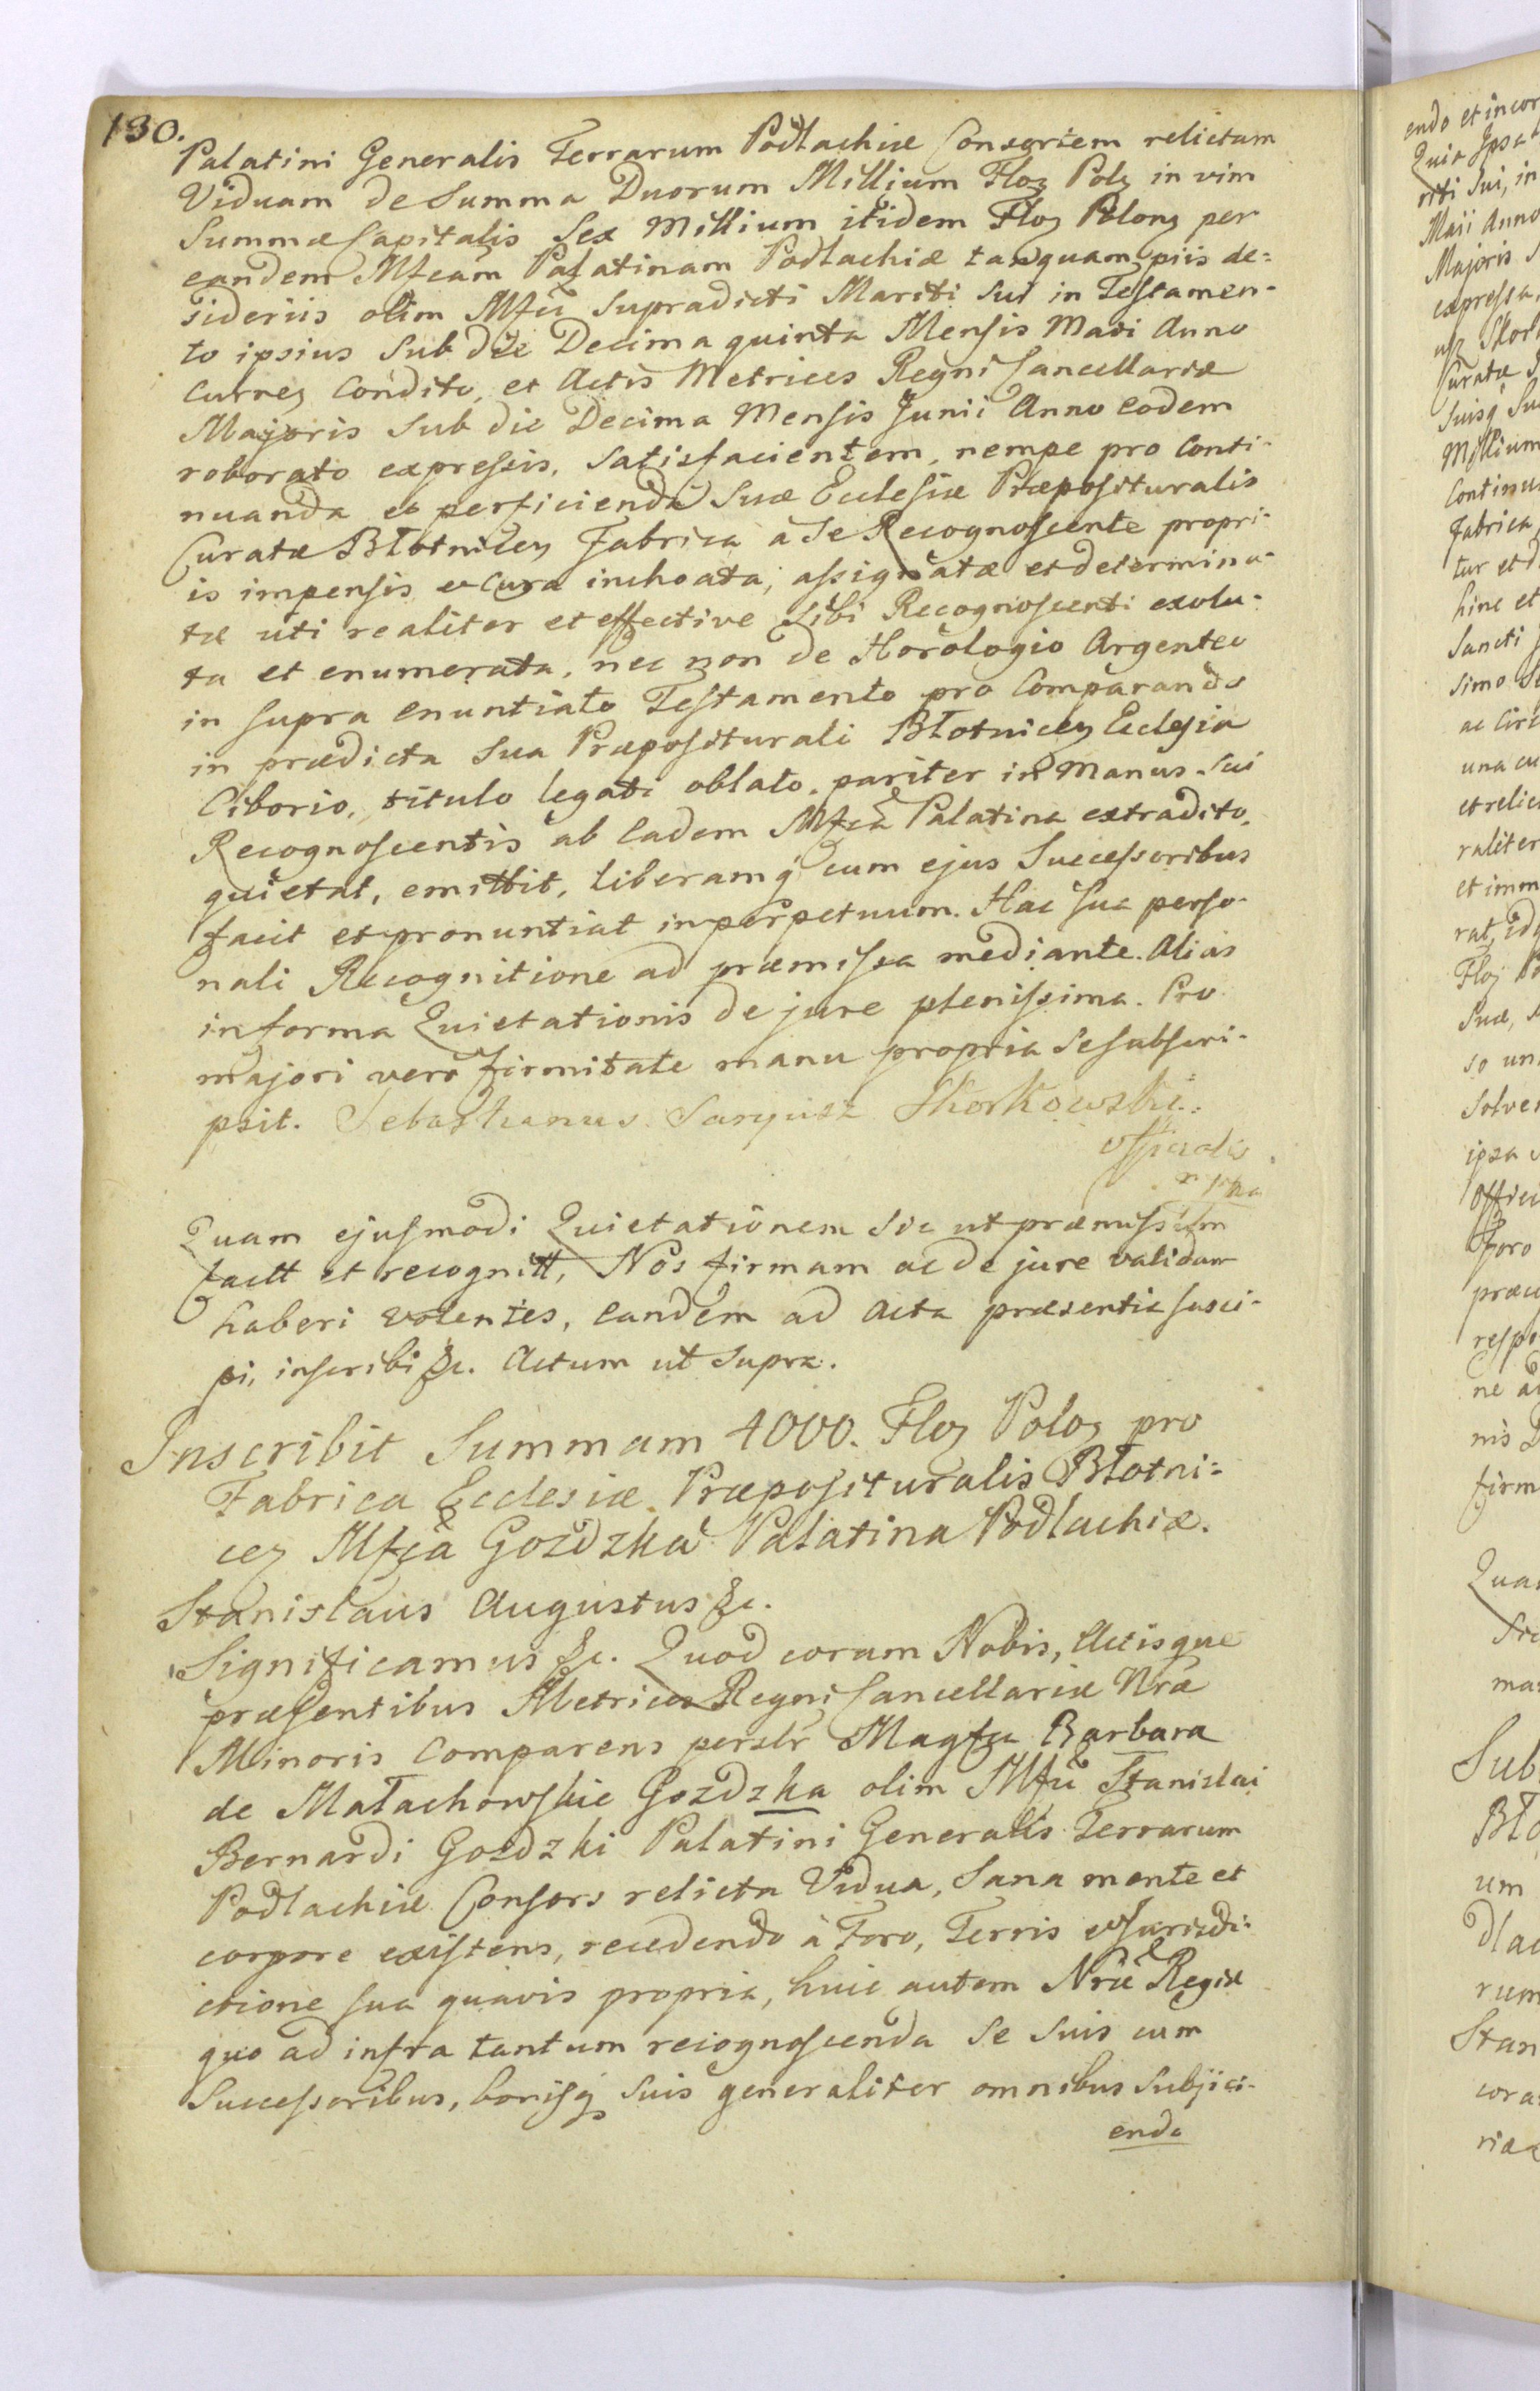 130.
Palatini Generalis Terrarum Podlachiæ Consortem relictam
Viduam de Summa Duorum Millium Floꝫ Polꝫ in vim
Summæ Capitalis Sex Millium itidem Floꝫ Polonꝫ per
eandem Mfcam Palatinam Podlachiæ tanquam piis de=
sideriis olim Mfci supradicti Mariti sui in Testamen-
to ipsius sub die Decima quinta Mensis Maii Anno
Currenꝫ Condito, et Actis Metrices Regni Cancellariæ
Majoris sub die Decima Mensis Junii Anno eodem
roborato expressis, satisfacientem, nempe pro Conti-
nuanda et perficienda suæ Ecclesiæ Præposituralis
Curatæ Błotnicenꝫ Fabrica a se Recognoscente propri-
is impensis et cura inchoata, assignatæ et determina-
tæ uti realiter et effective sibi Recognoscenti exolu-
ta et enumerata, nec non de Horologio Argenteo
in supra enuntiato Testamento pro Comparando
in prædicta sua Præpositurali Błotnicenꝫ Ecclesia
Ciborio, titulo legati oblato, pariter in Manus sui
Recognoscentis ab eadem Mfca Palatina extradito,
quietat, emittit, liberamq̃ cum ejus Successoribus
facit et pronuntiat in perpetuum. Hac sua perso-
nali Recognitione ad præmissa mediante. Alias
in forma Quietationis de jure plenissima. Pro
majori vero firmitate manu propria se subscri-
psit. Sebastianus Saryusz Skorkowski
Officialis
mpria
Quam ejusmodi Quietationem sic ut præmissum
factt et recognitt, Nos firmam ac de jure validam
haberi volentes, eandem ad Acta præsentia susci-
pi, inscribi &c. Actum ut supra.
Inscribit Summam 4000. Floꝫ Poloꝫ pro
Fabrica Ecclesiæ Præposituralis Błotni=
cenꝫ Mfca Gozdzka Palatina Podlachiæ.
Stanislaus Augustus &c.
Significamus &c. Quod coram Nobis, Actisque
præsentibus Metrices Regni Cancellariæ Nræ
Minoris Comparens perslr Magfca Barbara
de Małachowskie Gozdzka olim Mfci Stanislai
Bernardi Gozdzki Palatini Generalis Terrarum
Podlachiæ Consors relicta Vidua, sana mente et
corpore existens, recedendo à Foro, Terris et Jurisdi=
ctione sua quavis propria, huic autem Nræ Regiæ
quo ad infra tantum recognoscenda se suis cum
Successoribus, bonisq̃ suis generaliter omnibus subjici-
endo